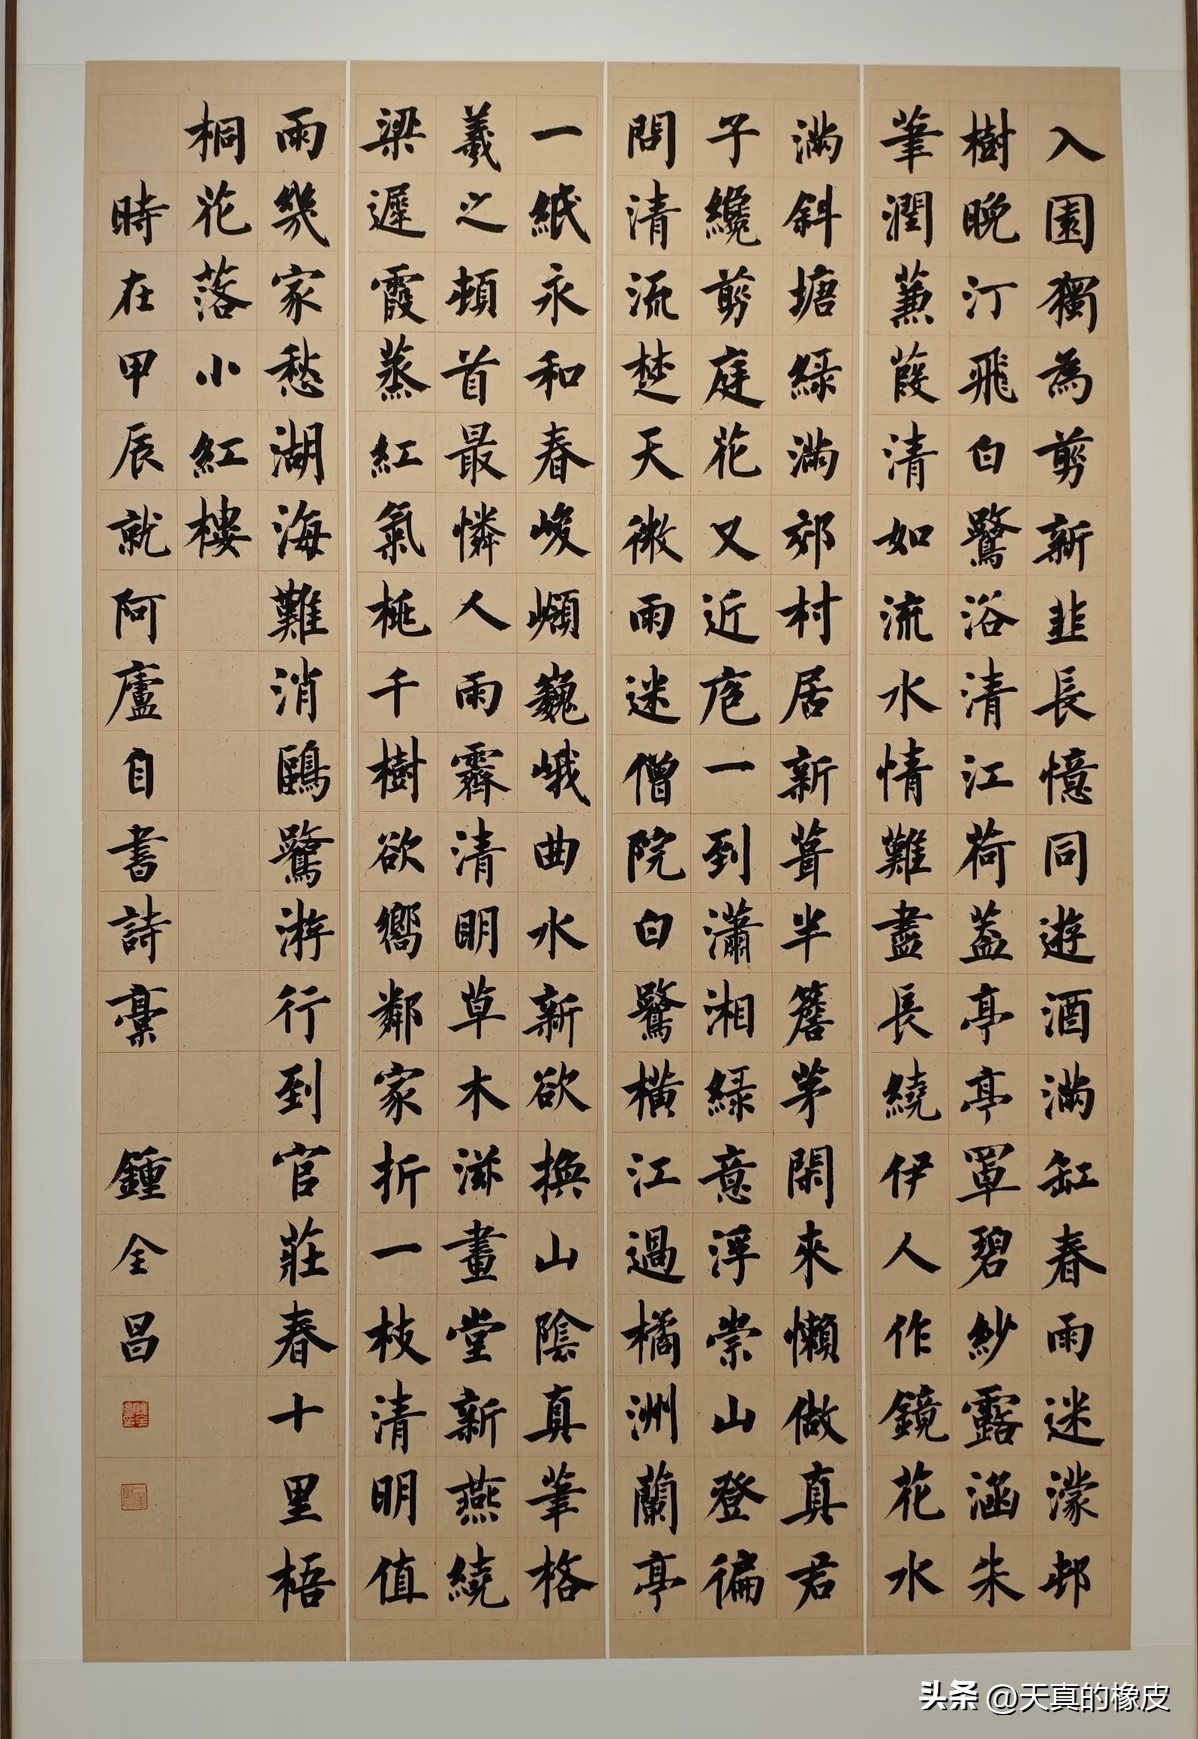 入園獨為剪新韭長憶同遊酒滿缸春雨迷濛邨
樹晚汀飛白鷺浴清江荷蓋亭亭罩碧紗露涵朱
筆潤蒹葭清如流水情難盡長繞伊人作鏡花水
滿斜塘綠滿郊村居新葺半簷茅閑來懶做真君
子纔剪庭花又近庖一到瀟湘綠意浮崇山登徧
問清流楚天微雨迷僧院白鷺橫江過橘洲蘭亭
一紙永和春峻嶺巍峨曲水新欲換山陰真筆格
羲之頓首最憐人雨霽清明草木滋畫堂新燕繞
梁遲霞蒸紅氣桃千樹欲嚮鄰家折一枝清明值
雨幾家愁湖海難消鷗鷺游行到官莊春十里梧
桐花落小紅樓
時在甲辰就阿廬自書詩稾 鍾全昌
头条 @天真的橡皮